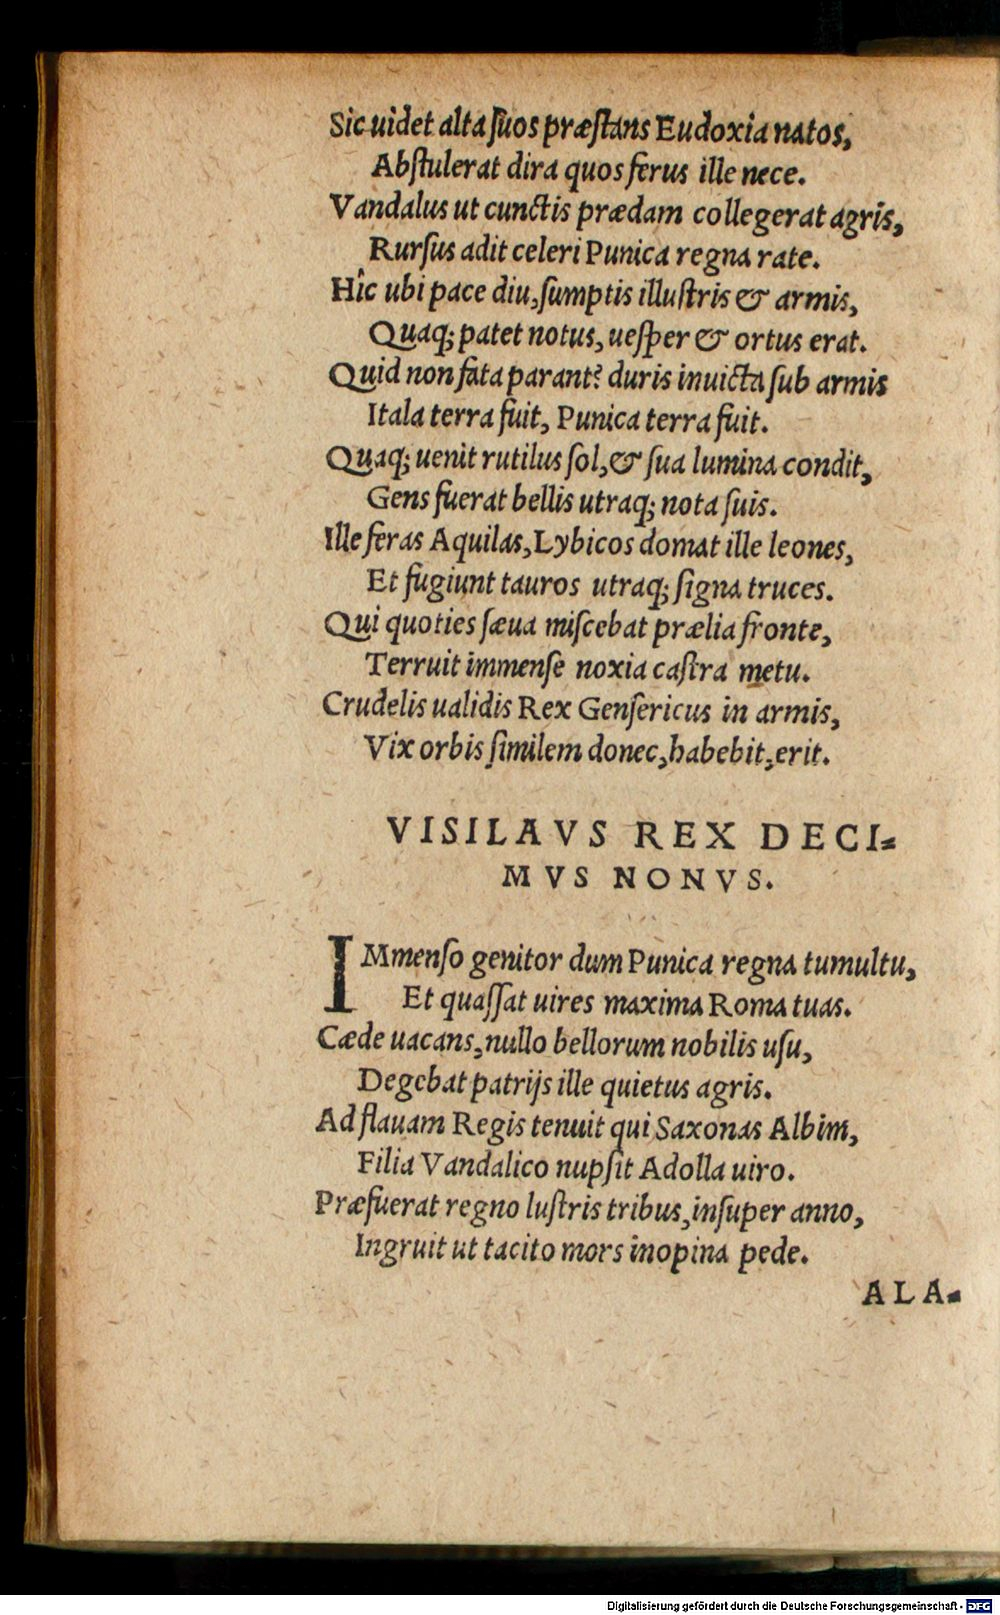 Sic uidet alta ſuos præſtans Eudoxia natos,
Abſtulerat dira quos ferus ille nece.
Vandalus ut cunctis prædam collegerat agris,
Rurſus adit celeri Punica regna rate.
Hîc ubi pace diu, ſumptis illuſtris & armis,
Quaq; patet notus, ueſper & ortus erat.
Quid non fata parant? duris inuicta ſub armis
Itala terra fuit, Punica terra fuit.
Quaq; uenit rutilus ſol, & ſua lumina condit,
Gens fuerat bellis utraq; nota ſuis.
Ille feras Aquilas, Lybicos domat ille leones,
Et fugiunt tauros utraq; ſigna truces.
Qui quoties ſæua miſcebat prælia fronte,
Terruit immenſe noxia caſtra metu.
Crudelis ualidis Rex Genſericus in armis,
Vix orbis ſimilem donec, habebit, erit.
VISILAVS REX DECI⸗
MVS NONVS.
IMmenſo genitor dum Punica regna tumultu,
Et quaſſat uires maxima Roma tuas.
Cæde uacans, nullo bellorum nobilis uſu,
Degebat patrijs ille quietus agris.
Ad flauam Regis tenuit qui Saxonas Albim,
Filia Vandalico nupſit Adolla uiro.
Præfuerat regno luſtris tribus, inſuper anno,
Ingruit ut tacito mors inopina pede.
ALA⸗
Digitalisierung gefördert durch die Deutsche Forschungsgemeinschaft - DFG